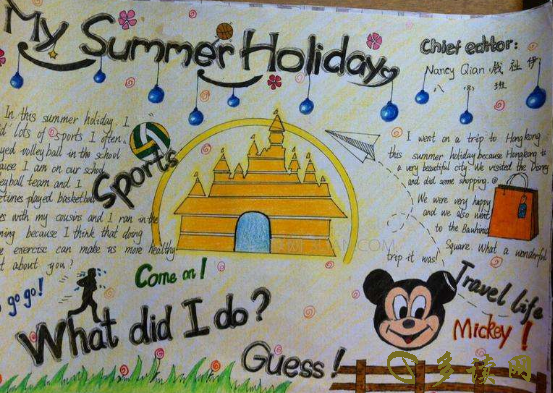 My Summer Holiday
Chief editor:
Nancy Qian
八 班
In this summer holiday. I
lots of sports I often
volleyball in the school
I am on our school
team and I
played basketball
with my cousins and I ran in the
because I think that doing
exercise can make us more healthy
about you?
Sports
I went on a trip to Hongkong
this summer holiday because Hongkong is
a very beautiful city. We visited the
and did some shopping.
We were very happy
and we also went
to the
Square. What a wonderful
trip it was!
go go!
Come on!
What did I do?
Guess!
Travel life
Mickey!
多读网